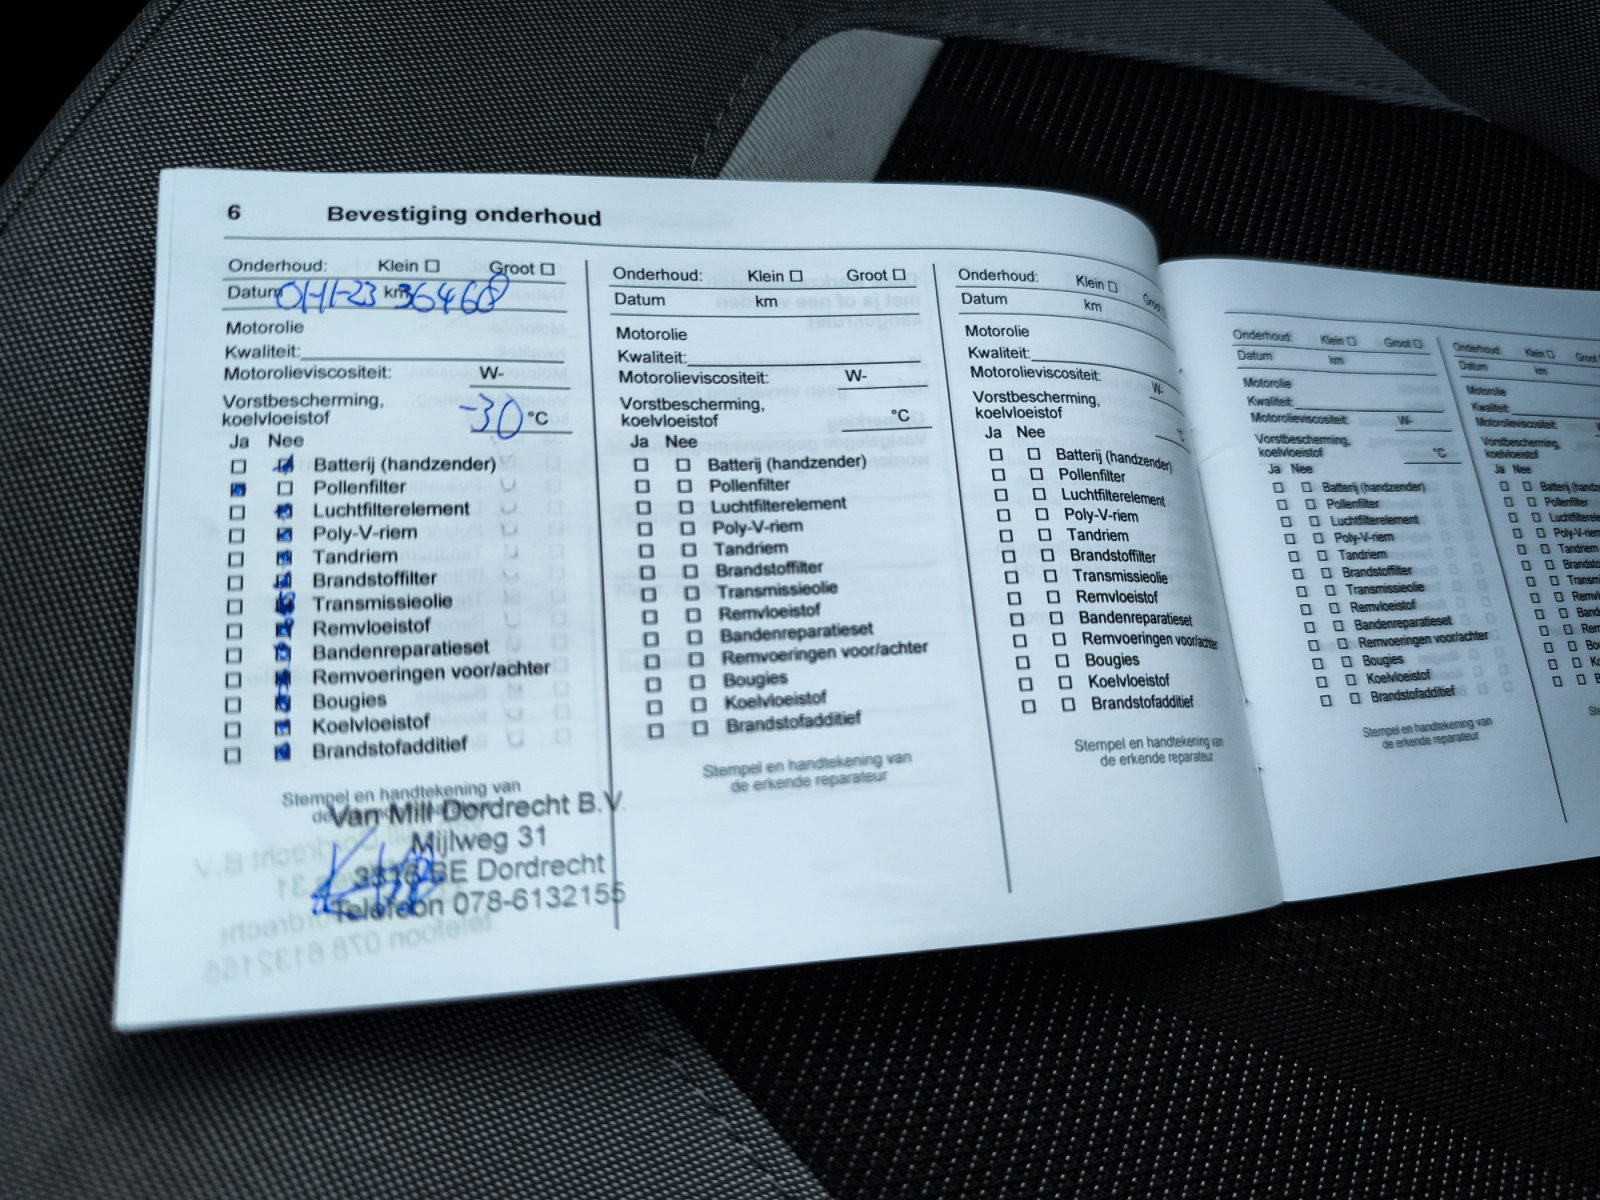 6 Bevestiging onderhoud
Onderhoud: Klein Groot
Datum 01-11-23 km 36468
Motorolie
Kwaliteit:
Motorolieviscositeit: W-
Vorstbescherming,
koelvloeistof -30 °C
Ja Nee
Batterij (handzender)
Pollenfilter
Luchtfilterelement
Poly-V-riem
Tandriem
Brandstoffilter
Transmissieolie
Remvloeistof
Bandenreparatieset
Remvoeringen voor/achter
Bougies
Koelvloeistof
Brandstofadditief
Stempel en handtekening van
Van Mill Dordrecht B.V.
Mijlweg 31
3316 BE Dordrecht
Telefoon 078-6132155
Onderhoud: Klein Groot
Datum km
Motorolie
Kwaliteit:
Motorolieviscositeit: W-
Vorstbescherming,
koelvloeistof °C
Ja Nee
Batterij (handzender)
Pollenfilter
Luchtfilterelement
Poly-V-riem
Tandriem
Brandstoffilter
Transmissieolie
Remvloeistof
Bandenreparatieset
Remvoeringen voor/achter
Bougies
Koelvloeistof
Brandstofadditief
Stempel en handtekening van
de erkende reparateur
Onderhoud: Klein
Datum km
Motorolie
Kwaliteit:
Motorolieviscositeit: W-
Vorstbescherming,
koelvloeistof °C
Ja Nee
Batterij (handzender)
Pollenfilter
Luchtfilterelement
Poly-V-riem
Tandriem
Brandstoffilter
Transmissieolie
Remvloeistof
Bandenreparatieset
Remvoeringen voor/achter
Bougies
Koelvloeistof
Brandstofadditief
Stempel en handtekening van
de erkende reparateur
Onderhoud: Klein Groot
Datum km
Motorolie
Kwaliteit:
Motorolieviscositeit: W-
Vorstbescherming,
koelvloeistof °C
Ja Nee
Batterij (handzender)
Pollenfilter
Luchtfilterelement
Poly-V-riem
Tandriem
Brandstoffilter
Transmissieolie
Remvloeistof
Bandenreparatieset
Remvoeringen voor/achter
Bougies
Koelvloeistof
Brandstofadditief
Stempel en handtekening van
de erkende reparateur
Onderhoud: Klein Groot
Datum km
Motorolie
Kwaliteit:
Motorolieviscositeit:
Vorstbescherming,
koelvloeistof
Ja Nee